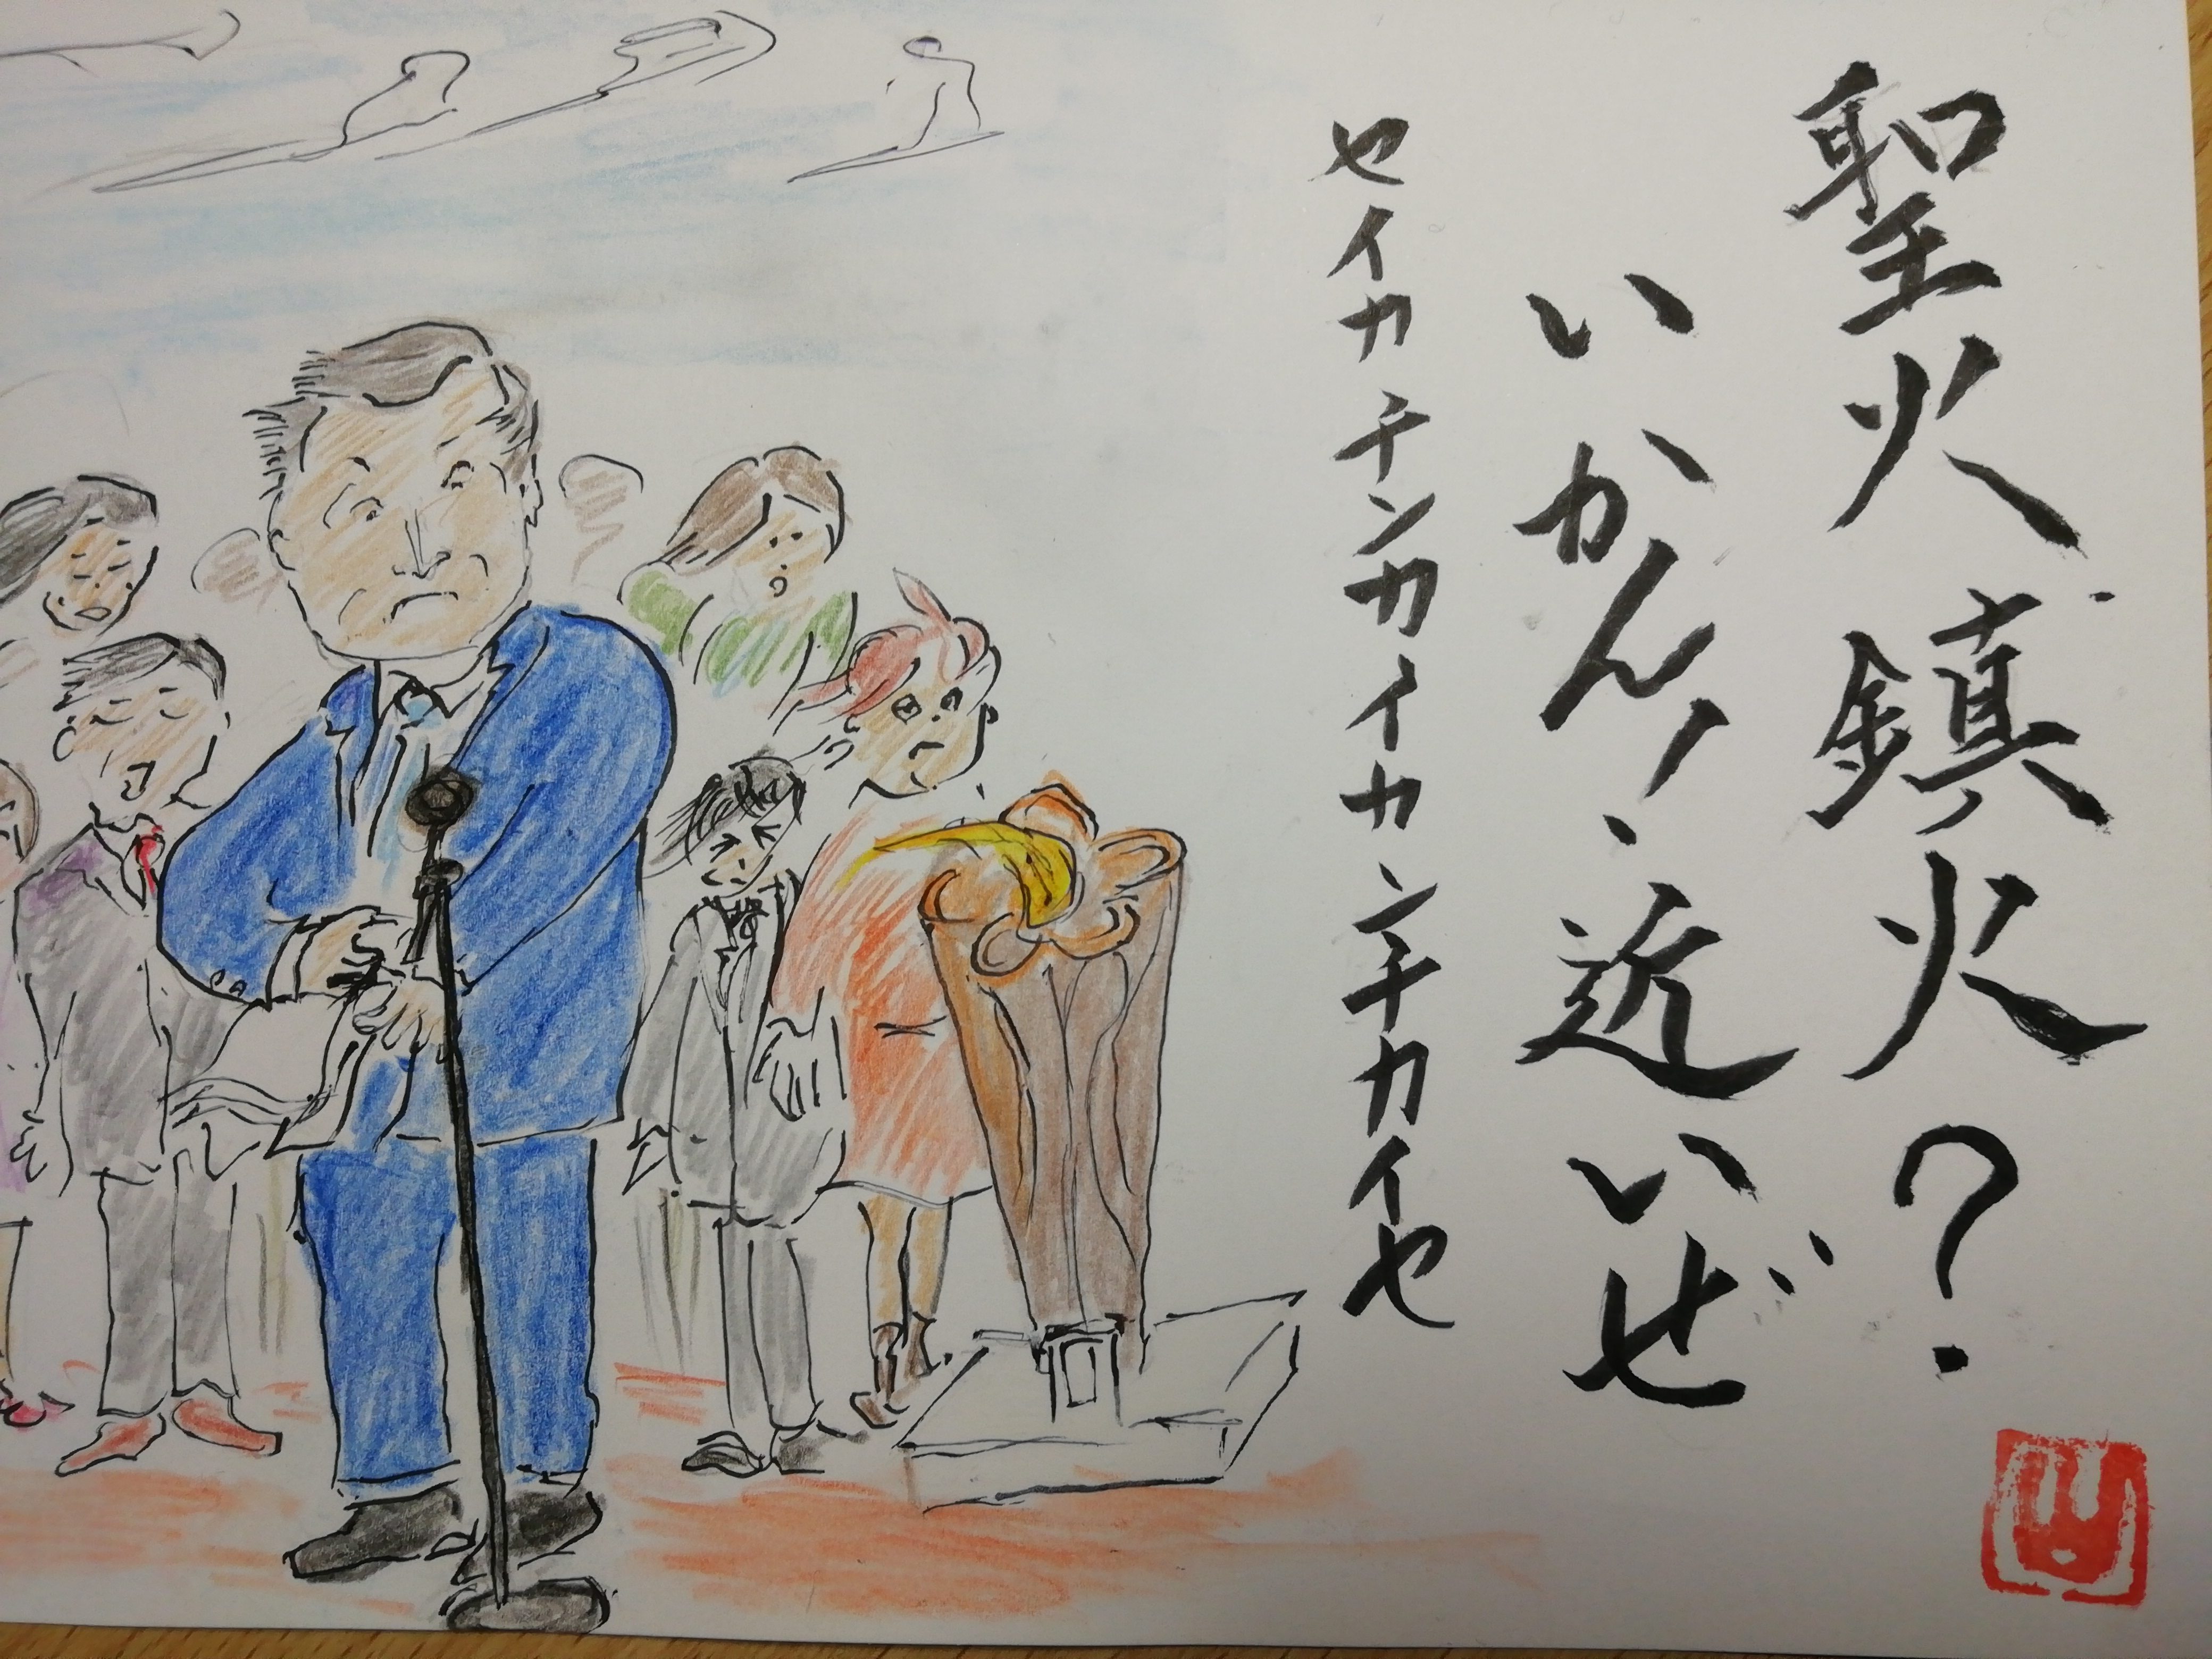 聖火鎮火?
いかん!近いぜ
セイカチンカイカンチカイセ